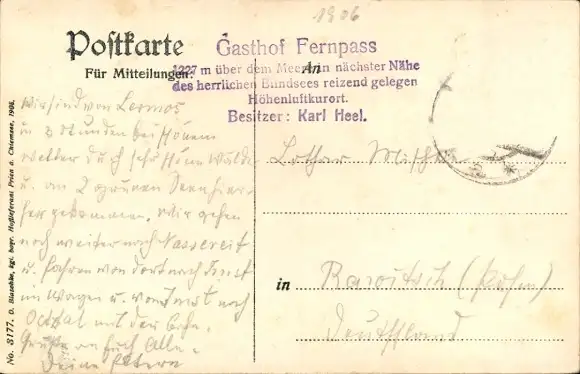 1906
Postkarte
Für Mitteilungen:
Gasthof Fernpass
1227 m über dem Meer in nächster Nähe
An
des herrlichen Blindsees reizend gelegen
Höhenluftkurort.
Besitzer: Karl Heel.
Wir sind von Lermos
in 3 Stunden bei schönem
Wetter durch sehr schöne Wälder
u. an 2 grünen Seen hier
her gekommen. Wir gehen
noch weiter nach Nassereit
u. fahren von dort nach Imst
im Wagen u. von Imst nach
Oetztal mit der Bahn.
Grüße an Euch Alle.
Deine Eltern
Lothar
in Rawitsch (Posen)
Deutschland
No. 3177. O. Blaschke, kgl. bayr. Hoflieferant Prien a. Chiemsee, 1904.